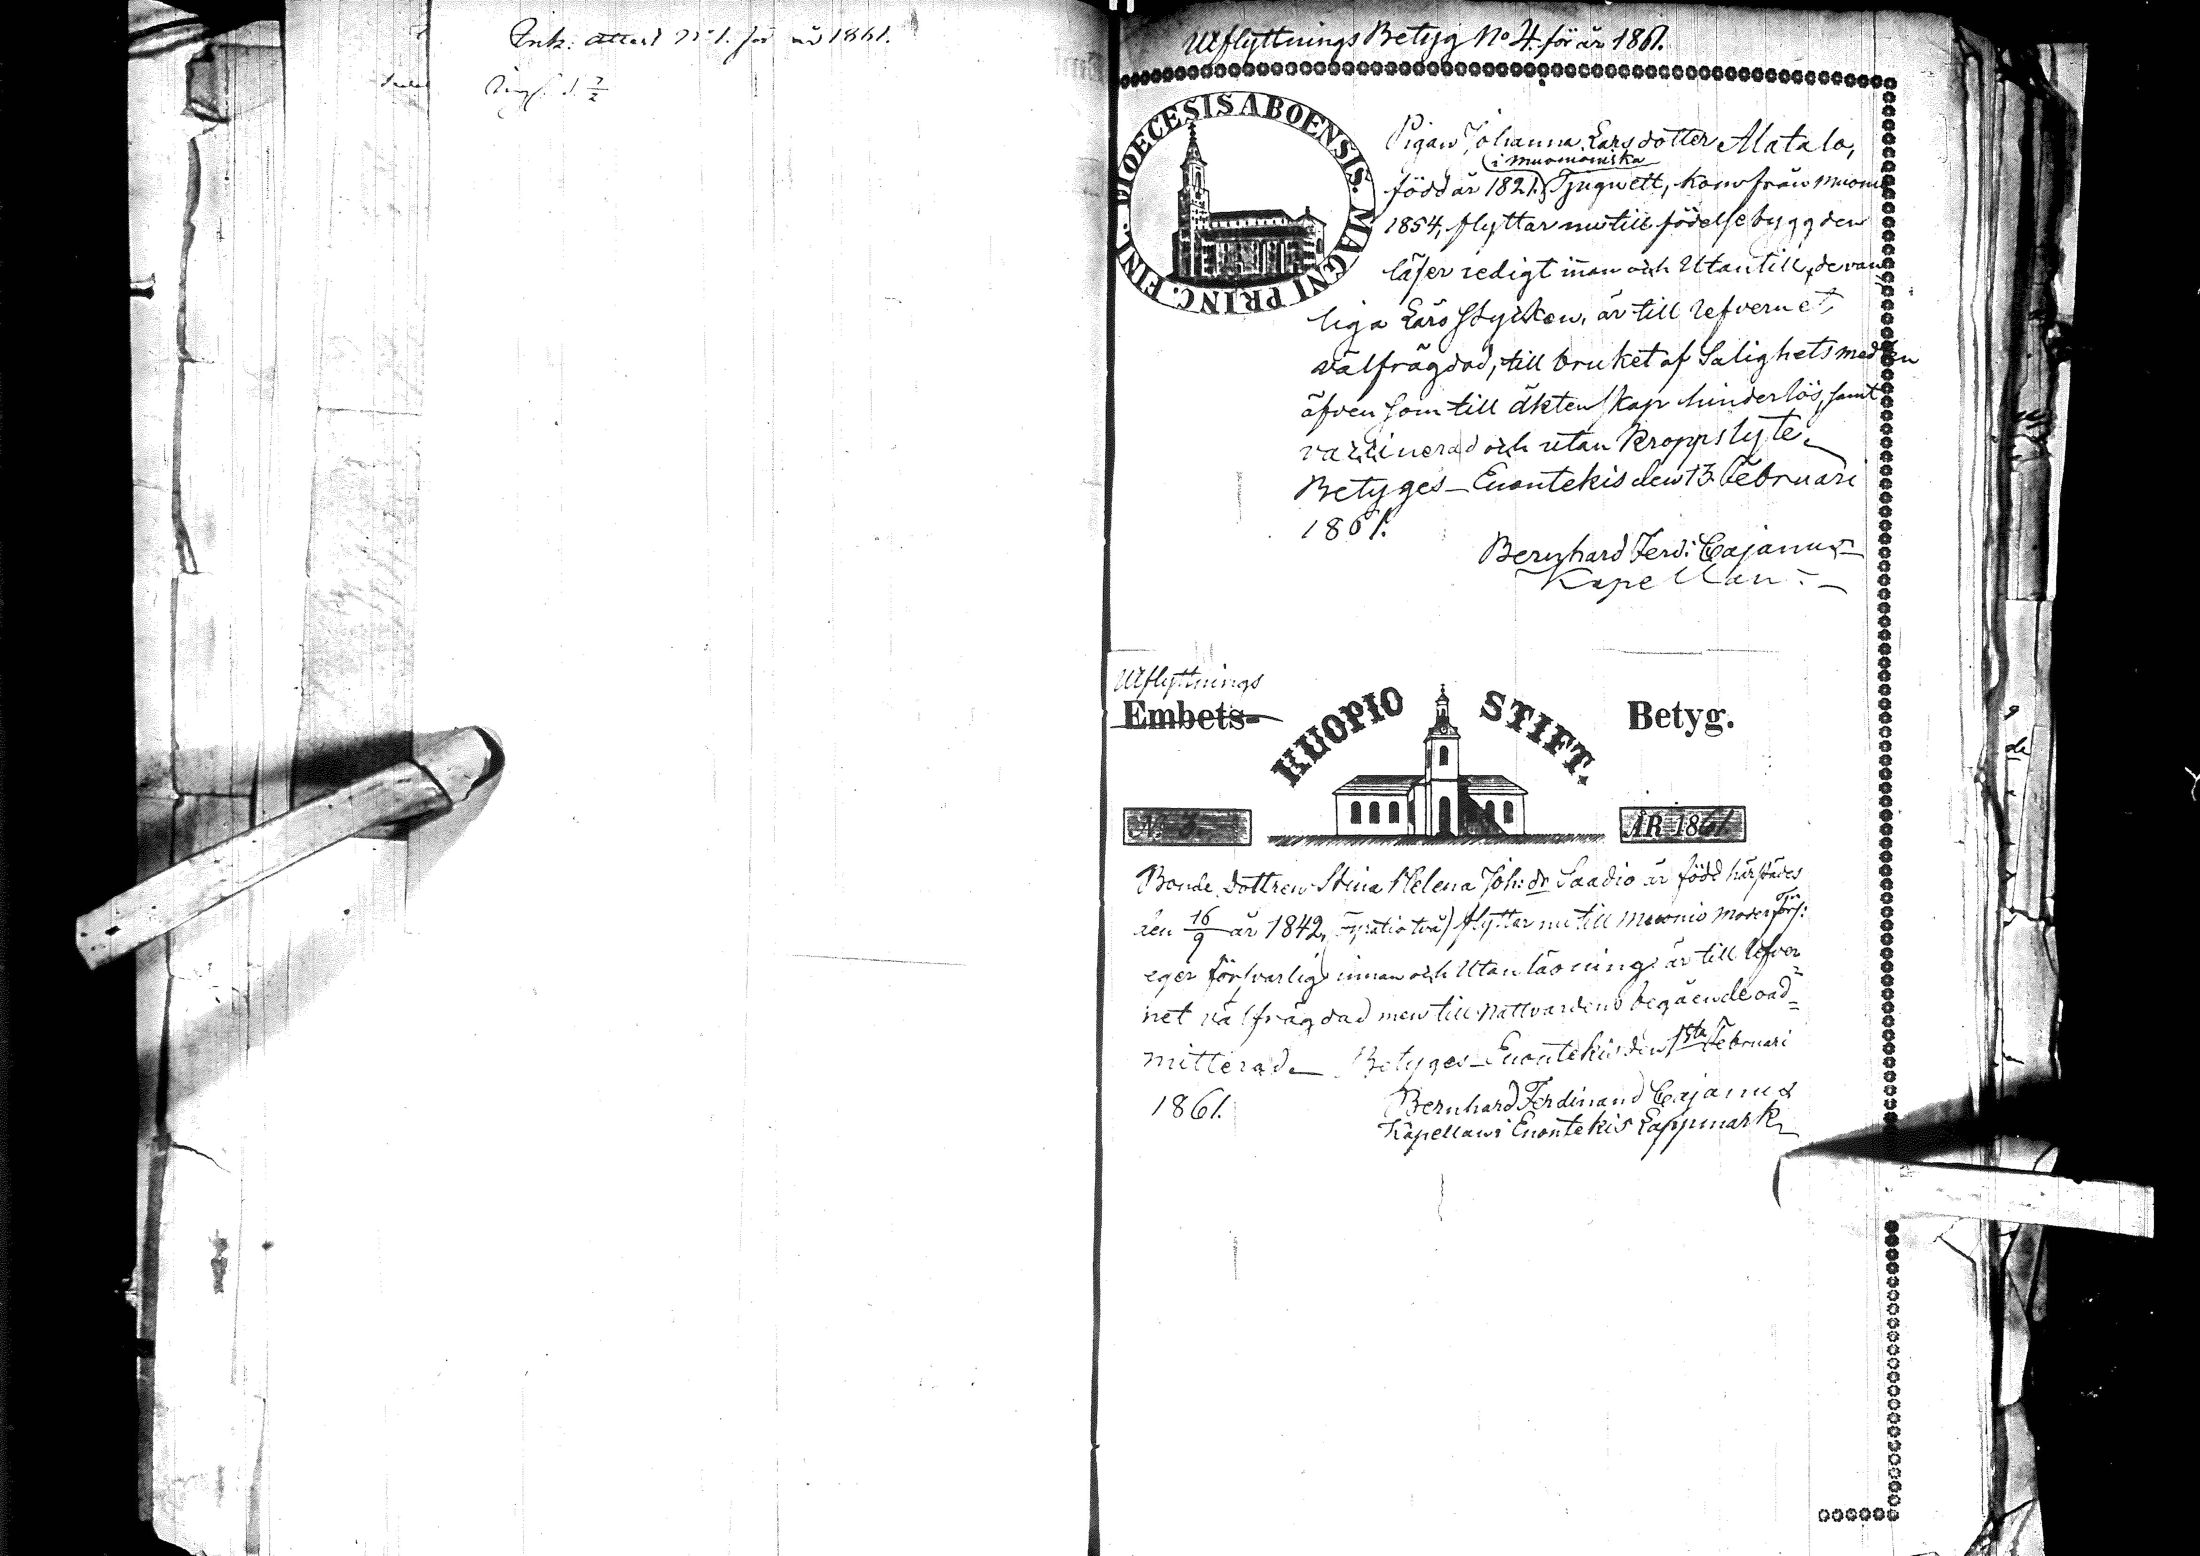 Ink: Attest No 1. för år 1861.
d. 7/2
Utflyttnings Betyg No 4. för år 1861.
DIOECESIS ABOENSIS. MAGNI PRINC. FINL.
Pigan Johanna Larsdotter Alatalo,
i Muonioniska
född år 1821. Tjuguett, kom från Muonio
1854, flyttar nu till födelsebyggden
läser redigt innan och Utantill, de van
liga Lärostycken, är till lefvernet
välfrägdad, till bruket af Salighetsmedlen
äfvensom till äktenskap hinderlös, samt
vaccinerad och utan Kroppslyte.
Betyges Enontekis den 13 Februari
1861.
Bernhard Ferd: Cajanus
Kapellan
Utflyttnings
Embets- KUOPIO STIFT. Betyg.
N:o 3. ÅR 1861.
Bonde dottren Stina Helena Joh: dr Saadio är född härstädes
den 16/9 år 1842, Fyratio två) flyttar nu till Muonio moderförs:
eger försvarlig innan och Utanläsning: är till lefver
net välfrägdad men till Nattvardens begående oad-
mitterad. Betyges Enontekis den Februari
1861.
Bernhard Ferdinand Cajanus
Kapellan i Enontekis Lappmark